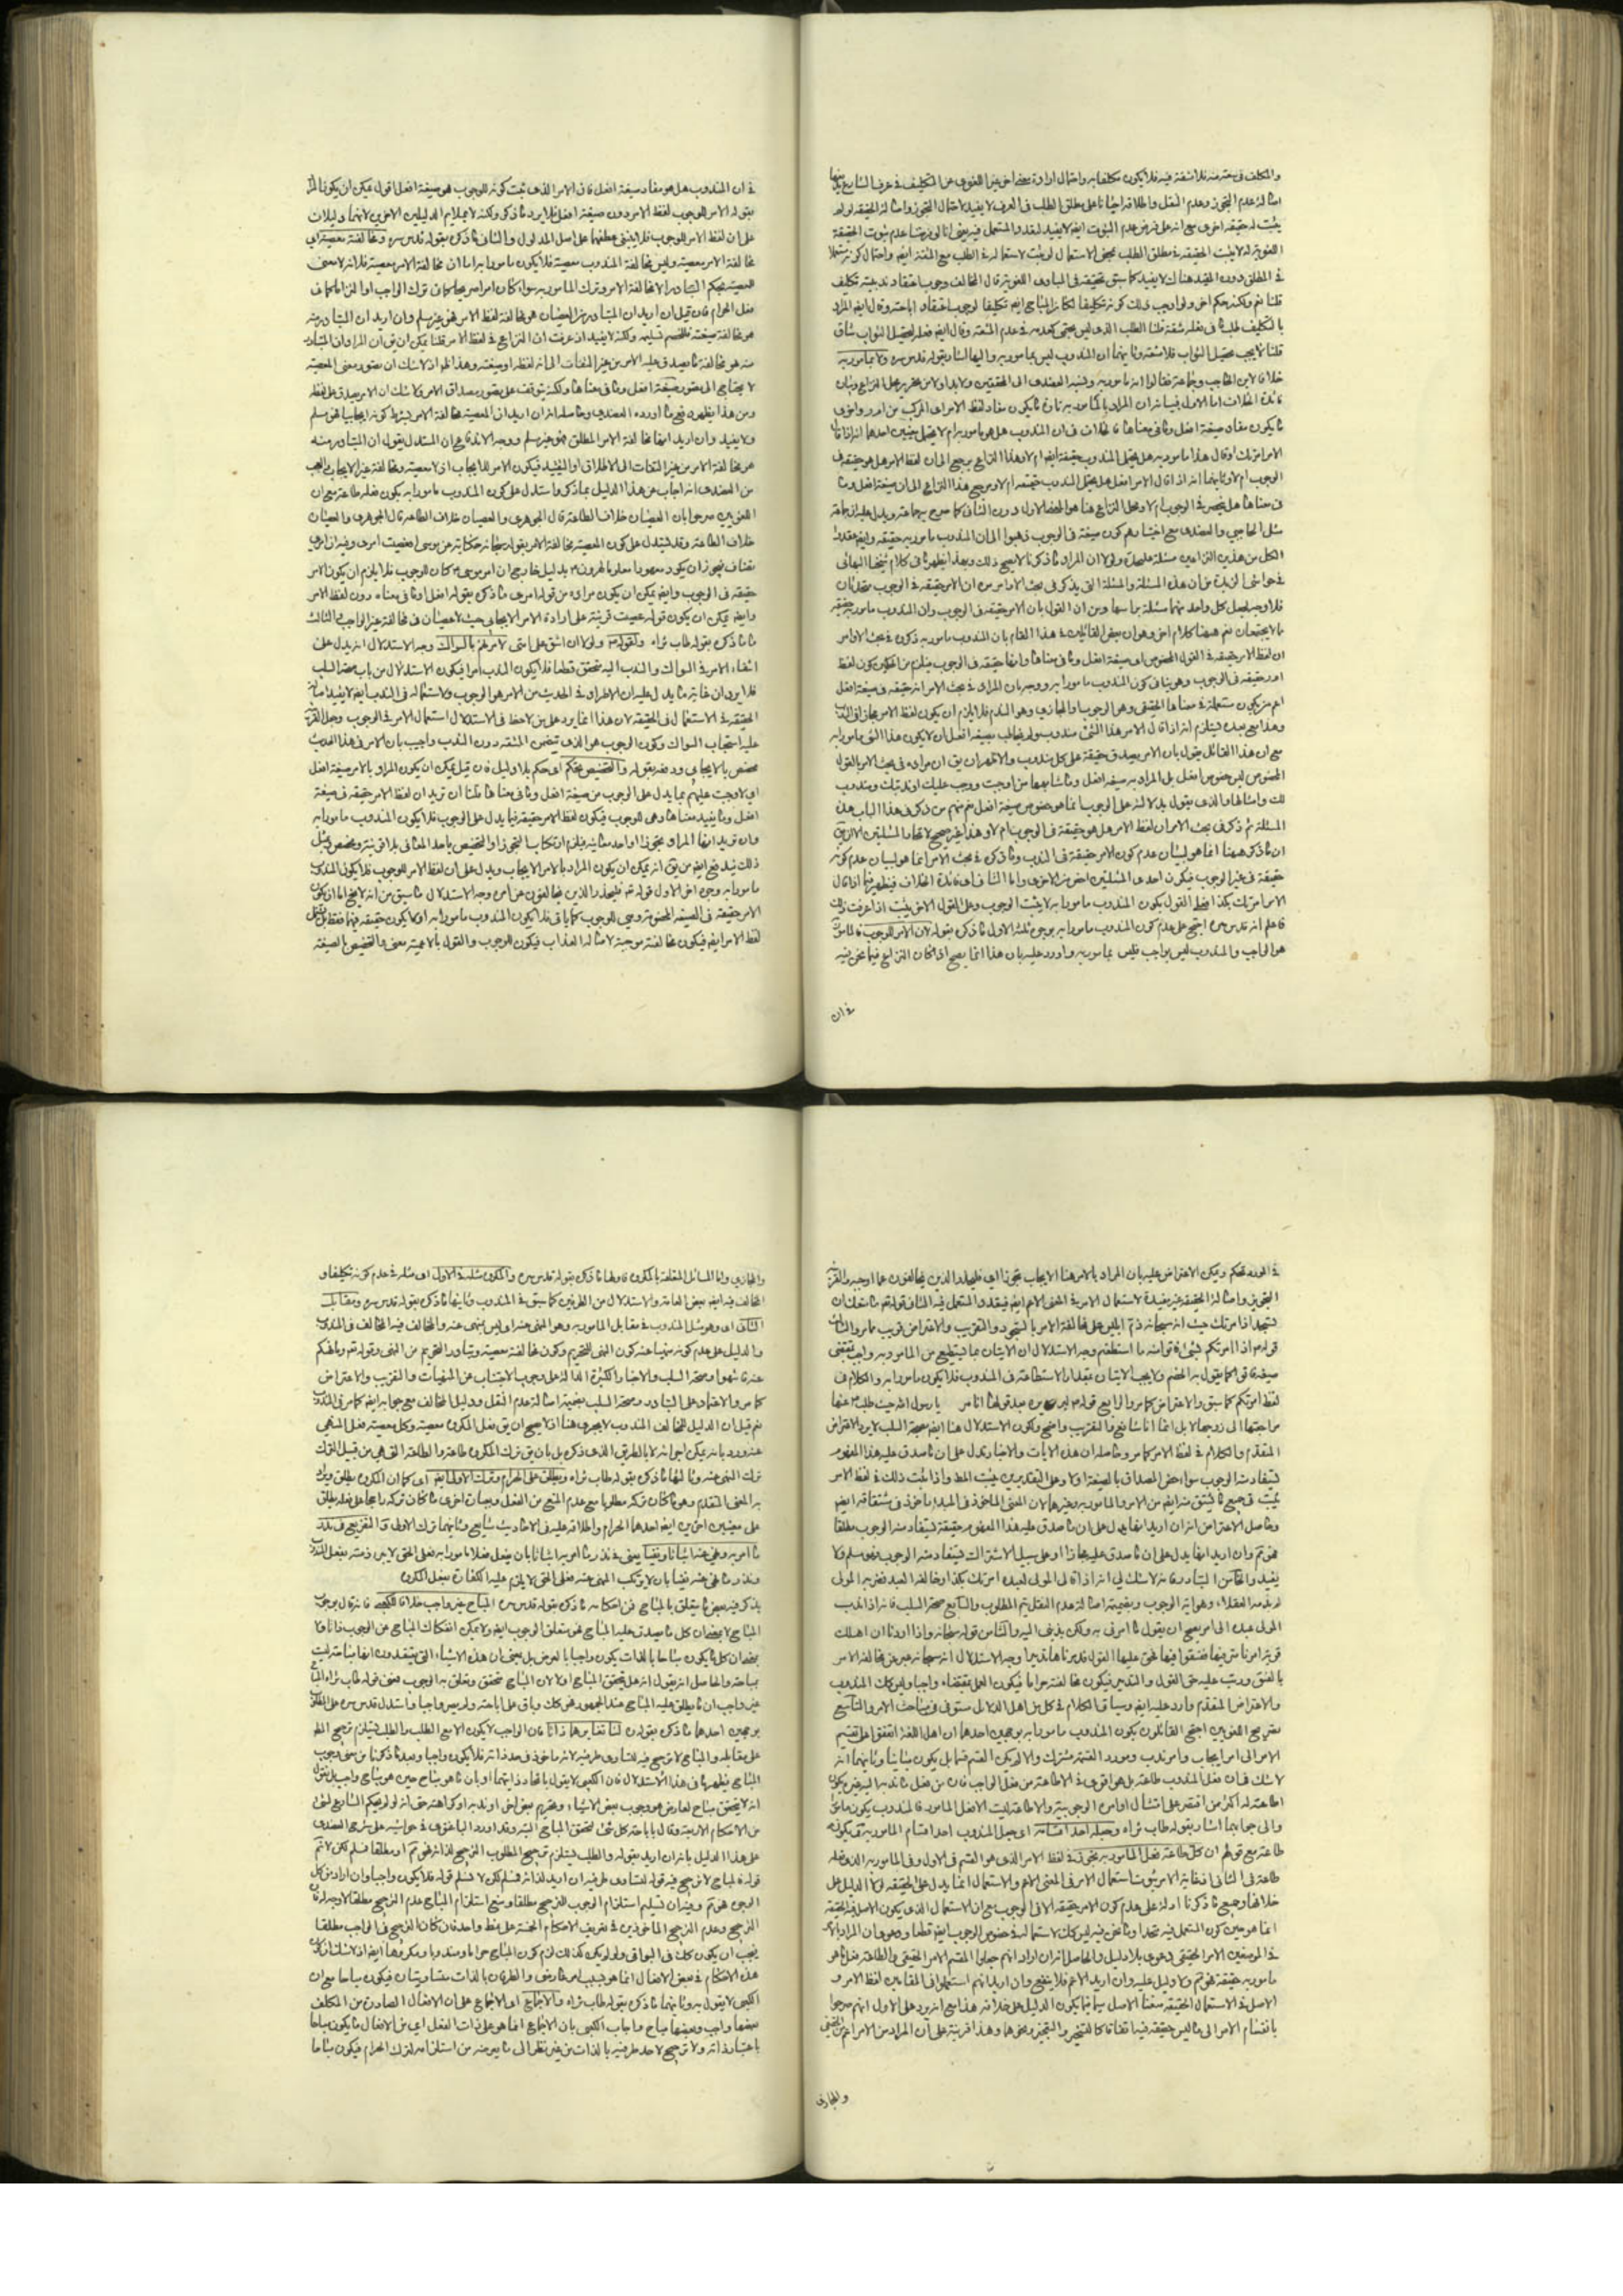 والمكلف في فلا يكون مكلفا به واحتمال ارادة معنى اخر غير اللغوي من التكليف في عرف الشارع
اصالة عدم التجوز وعدم النقل واطلاقه احيانا على مطلق الطلب في العرف لا يفيد لاحتمال التجوز واصالة الحقيقة لو لم
يثبت له حقيقة اخرى مع انه على فرض عدم الثبوت ايضا لا يفيد
اللغوية لا يثبت الحقيقة في مطلق الطلب بمحض الاستعمال لو ثبت لاستعماله في الطلب مع المشقة ايضا واحتمال كونه مستعملا
في المطلق دون المقيد هناك لا يفيد كما سبق تحقيقه في المبادي اللغوية قال المخالف وجوب اعتقاد ندبيته تكليف
قلنا نعم ولكنه حكم اخر ولو اوجب ذلك كونه تكليفا لكان المباح ايضا تكليفا لوجوب اعتقاد اباحته وقال ايضا المراد
بالتكليف طلب ما في فعله مشقة قلنا الطلب الذي ليس بحتمي كعدمه في عدم المشقة وقال ايضا فعله لتحصيل الثواب شاق
قلنا لا يجب تحصيل الثواب فلا مشقة وثانيهما ان المندوب ليس بمامور به واليها اشار بقوله قدس سره ولا بمامور به
خلافا لابن الحاجب وجماعة فقالوا انه مامور به ونسبه العضدي الى المحققين ولا بد اولا من تحرير محل النزاع وبيان
فائدة الخلاف اما الاول فبيانه ان المراد بالمامور به تارة ما يكون مفاد لفظ الامر اي المركب من ا م ر واخرى
ما يكون مفاد صيغة افعل وما في معناها فالخلاف في ان المندوب هل هو مامور به ام لا يحتمل معنيين احدهما انه اذا قال
الامر امرتك او قال هذا مامور به هل يحتمل المندوب حقيقة ايضا ام لا وهذا النزاع يرجع الى ان لفظ الامر هل هو حقيقة في
الوجوب ام لا وثانيهما انه اذا قال الامر افعل هل يحتمل المندوب حقيقة ام لا ومرجع هذا النزاع الى ان صيغة افعل وما
في معناها هل ينحصر في الوجوب ام لا ومحل النزاع هنا هو المعنى الاول دون الثاني كما صرح به جماعة ويدل عليه ان جماعة
مثل الحاجبي والعضدي مع اختيارهم كون صيغة في الوجوب ذهبوا الى ان المندوب مامور به حقيقة وايضا عقدوا
لكل من هذين النزاعين مسئلة عليحدة ولولا ان المراد ما ذكرنا لا يصح ذلك وبهذا يظهر ما في كلام شيخنا البهائي
في حواشي الزبدة من ان هذه المسئلة والمسئلة التي يذكر في بحث الاوامر من ان الامر حقيقة في الوجوب متحدتان
فلا وجه لجعل كل واحد منهما مسئلة براسها ومن ان القول بان الامر حقيقة في الوجوب وان المندوب مامور به حقيقة
مما لا يجتمعان نعم هيهنا كلام اخر وهو ان بعض القائلين في هذا المقام بان المندوب مامور به ذكروا في بحث الاوامر
ان لفظ الامر حقيقة في القول المخصوص اي صيغة افعل وما في معناها وانها حقيقة في الوجوب فيلزم من الحكمين كون لفظ
امر حقيقة في الوجوب وهو ينافي كون المندوب مامورا به ووجه بان المراد في بحث الامر انه حقيقة في صيغة افعل
اعم من يكون مستعملة في معناها الحقيقي وهو الوجوب والمجازي وهو الندب فلا يلزم ان يكون لفظ الامر مجازا في الندب
وهذا مع بعده يستلزم انه اذا قال الامر هذا الشئ مندوب ولم يخاطب بصيغة افعل ان لا يكون هذا الشئ مامورا به
مع ان هذا القائل يقول بان الامر يصدق حقيقة على كل مندوب والاظهر ان يق ان مراده في بحث الامر بالقول
المخصوص ليس خصوص افعل بل المراد به صيغة افعل وما شابهها من اوجبت ووجب عليك او ندبتك ومندوب
لك وامثالها والذي يقول بدلالته على الوجوب انما هو خصوص صيغة افعل نعم منهم من ذكر في هذا الباب هذه
المسئلة ثم ذكر في بحث الامر ان لفظ الامر هل هو حقيقة في الوجوب ام لا وهذا غير صحيح لاتحاد المسئلتين الا ان يق
ان ما ذكر هيهنا انما هو لبيان عدم كون الامر حقيقة في الندب وما ذكر في بحث الامر انما هو لبيان عدم كونه
حقيقة في غير الوجوب فيكون احدى المسئلتين اخص من الاخرى واما الثاني اي فائدة الخلاف فيظهر فيما اذا قال
الامر امرتك بكذا فعلى القول بكون المندوب مامورا به لا يثبت الوجوب وعلى القول الاخر يثبت اذا عرفت ذلك
فاعلم انه قدس سره احتج على عدم كون المندوب مامورا به بوجوه ثلثة الاول ما ذكره بقوله لان الامر للوجوب فالمامور به
هو الواجب والمندوب ليس بواجب فليس بمامور به واورد عليه بان هذا انما يصح اذا كان النزاع فيما نحن فيه
في ان
في ان المندوب هل هو مفاد صيغة افعل فان الامر الذي ثبت كونه للوجوب هو صيغة افعل اقول يمكن ان يكون المراد
بقوله الامر للوجوب لفظ الامر دون صيغة افعل فلا يرد ما ذكر ولكنه لا يلايم الدليلين الاخرين لانهما دليلان
على ان لفظ الامر للوجوب فلا ينبغي عطفهما على اصل المدلول والثاني ما ذكره بقوله قدس سره ومخالفته معصية اي
مخالفة الامر معصية وليس مخالفة المندوب معصية فلا يكون مامورا به اما ان مخالفة الامر معصية فلانه لا معنى
للمعصية بحكم التبادر الا مخالفة الامر وترك المامور به سواء كان امرا صريحا كما في ترك الواجب او التزاما كما في
فعل الحرام فان قيل ان اريد ان المتبادر من العصيان هو مخالفة لفظ الامر فهو غير مسلم وان اريد ان المتبادر منه
هو مخالفة صيغته فللخصم تسليمه ولكنه لا يفيد اذ عرفت ان النزاع في لفظ الامر قلنا يمكن ان يق ان المراد ان المتبادر
منه هو مخالفة ما يصدق عليه الامر من غير التفات الى انه لفظه او صيغته وهذا ظاهر اذ لا شك ان تصور معنى المعصية
لا يحتاج الى تصور صيغة افعل وما في معناها ولكنه يتوقف على تصور مصداق الامر ولا شك ان الامر يصدق على لفظه
ومن هذا يظهر دفع ما اورده العضدي وحاصله انه ان اريد ان المعصية مخالفة الامر بشرط كونه ايجابيا فهو مسلم
ولا يفيد وان اريد انها مخالفة الامر المطلق فهو غير مسلم ووجه الاندفاع ان المستدل يقول ان المتبادر منه
هو مخالفة الامر من غير التفات الى الاطلاق او التقييد فيكون الامر للايجاب اذ لا معصية في مخالفة غير الايجاب والعجب
من العضدي انه اجاب عن هذا الدليل بما ذكر واستدل على كون المندوب مامورا به بكون فعله طاعة مع ان
اللغويين صرحوا بان العصيان خلاف الطاعة قال الجوهري والعصيان خلاف الطاعة قال الجوهري والعصيان
خلاف الطاعة وقد يستدل على كون المعصية مخالفة الامر بقوله سبحانه حكاية عن موسى افعصيت امري وفيه ان امري
مضاف فيجوز ان يكون معهودا معلوما لهرون بدليل خارج ان امر موسى كان للوجوب فلا يلزم ان يكون الامر
حقيقة في الوجوب وايضا يمكن ان يكون مراده من قوله امري ما ذكره بقوله افعل وما في معناه دون لفظ الامر
وايضا يمكن ان يكون قوله عصيت قرينة على ارادة الامر الايجابي حيث لا عصيان في مخالفة غير الواجب الثالث
ما ذكره بقوله طاب ثراه ولقوله لولا ان اشق على امتي لامرتهم بالسواك وجه الاستدلال انه يدل على
انتفاء الامر في السواك والندب اليه متحقق قطعا فلا يكون الندب امرا فيكون الاستدلال من باب صحة السلب
فلا يرد ان غاية ما يدل عليه ان الامر في الحديث من الامر هو الوجوب والاستعمال في الندب ايضا لا يفيد اصالة
الحقيقة في الاستعمال في الحقيقة لان هذا انما يرد على من لاحظ في الاستدلال استعمال الامر في الوجوب وجعل القرينة
عليه استحباب السواك وكون الوجوب هو الذي يتضمن المشقة دون الندب واجيب بان الامر في هذا الحديث
مختص بالايجاب ودفعه بقوله والتخصيص تحكم اي حكم بلا دليل فان قيل يمكن ان يكون المراد بالامر صيغة افعل
اي لاوجبت عليهم بما يدل على الوجوب من صيغة افعل وما في معناها قلنا ان تريد ان لفظ الامر حقيقة في صيغة
افعل وما يفيد معناها وهي للوجوب فيكون لفظ الامر حقيقة فيما يدل على الوجوب فلا يكون المندوب مامورا به
وان تريد انها المراد تجوزا او احد معانيه فيلزم ارتكاب التجوز او التخصيص باحد المعاني بلا قرينة ومخصص وبمثل
ذلك يندفع ايضا من يق انه يمكن ان يكون المراد بالامر الايجاب ويدل على ان لفظ الامر للوجوب فلا يكون المندوب
مامورا به وجوه اخر الاول قوله تع فليحذر الذين يخالفون عن امره وجه الاستدلال ما سبق من انه لا يخ اما ان يكون
الامر حقيقة في الصيغة المخصوصة وهي للوجوب كما ياتي فلا يكون المندوب مامورا به او لا يكون حقيقة فيها فقط بل يشمل
لفظ الامر ايضا فيكون مخالفته موجبة لاصابة العذاب فيكون للوجوب والقول بالاعمية معنى والتخصيص بالصيغة
في المورد تحكم ويمكن الاعتراض عليه بان المراد بالامر هنا الايجاب تجوزا اي فليحذر الذين يخالفون عما اوجبه والقرينة
التحذير واصالة الحقيقة غير مفيدة لاستعمال الامر في المعنى الاعم ايضا الثاني قوله تع ما منعك ان
تسجد اذ امرتك حيث انه سبحانه ذم ابليس على مخالفة الامر بالسجود والتقريب والاعتراض قريب مما مر والثالث
قوله اذا امرتكم بشئ فاتوا منه ما استطعتم وجه الاستدلال ان الاتيان بما يستطيع من المامور به واجب بمقتضى
صيغة فاتوا كما يقول به الخصم ولا يجب الاتيان بمقدار الاستطاعة في المندوب فلا يكون مامورا به والكلام في
لفظ امرتكم كما سبق والاعتراض كما مر والرابع قوله لبريرة بعد قولها اتامرني يا رسول الله حيث طلب منها
مراجعتها الى زوجها لا بل انما انا شافع والتقريب واضح ولكون الاستدلال هنا ايضا بصحة السلب لا يرد الاعتراض
المتقدم والكلام في لفظ الامر كما مر وحاصله ان هذه الايات والاخبار تدل على ان ما صدق عليه هذا المفهوم
يستفاد منه الوجوب سواء خص المصداق بالصيغة او لا وعلى التقديرين يثبت المط واذا ثبت ذلك في لفظ الامر
يثبت في جميع ما يشتق منه ايضا من الامر والمامور به وغيرهما لان المعنى الماخوذ في المبداء ماخوذ في مشتقاته ايضا
وحاصل الاعتراض انه ان اريد انها يدل على ان ما صدق عليه هذا المفهوم حقيقة يستفاد منه الوجوب مطلقا
فهو تم وان اريد انها يدل على ان ما صدق عليه مجازا او على سبيل الاشتراك يستفاد منه الوجوب فهو مسلم ولا
يفيد والخامس التبادر فانه لا شك في انه اذا قال المولى لعبده امرتك بكذا وخالفه العبد فضربه المولى
لم يذمه العقلاء وهو اية الوجوب وبضميمة اصالة عدم النقل يتم المطلوب والسابع صحة السلب فانه اذا ندب
المولى عبده الى امر يصح ان يقول ما امرني به ولكن ندبني اليه والثامن قوله سبحانه واذا اردنا ان نهلك
قرية امرنا مترفيها ففسقوا فيها فحق عليها القول فدمرناها تدميرا وجه الاستدلال انه سبحانه عبر عن مخالفة الامر
بالفسق ورتب عليه حق القول والتدمير فيكون مخالفته حراما فيكون العمل بمقتضاه واجبا وليس كك المندوب
والاعتراض المتقدم وارد عليه ايضا وسياق الكلام في كل من هذه الدلائل مستوفى في مباحث الامر والتاسع
تصريح اللغويين احتج القائلون بكون المندوب مامورا به بوجهين احدهما ان اهل اللغة اتفقوا على تقسيم
الامر الى امر ايجاب وامر ندب ومورد القسمة مشترك والا لم يكن القسم قسما بل يكون مباينا وثانيهما انه
لا شك في ان فعل المندوب طاعة بل هو اقوى في الاطاعة من فعل الواجب فان من فعل ما ندبه السيد يكون
اطاعته له اكثر من اقتصر على امتثال اوامره الوجوبية والاطاعة ليست الا فعل المامور به فالمندوب يكون مامورا به
والى جوابهما اشار بقوله طاب ثراه وجعله احد اقسامه اي جعل المندوب احد اقسام المامور به كونه
طاعة مع قولهم ان كل طاعة فعل المامور به تجوز في لفظ الامر الذي هو القسم في الاول وفي المامور به الذي فعله
طاعة في الثاني استعمال الامر في المعنى الاعم والاستعمال انما يدل على الحقيقة لولا الدليل على
خلافها وجميع ما ذكرنا ادلة على عدم كون الامر حقيقة الا في الوجوب مع ان الاستعمال الذي يكون الاصل فيه الحقيقة
انما هو حين كون المستعمل فيه متحدا وما نحن فيه ليس كك لاستعماله في خصوص الوجوب ايضا قطعا ودعوى ان المراد
في الموضعين الامر الحقيقي دعوى بلا دليل والحاصل انه ان اراد انهم جعلوا المقسم الامر الحقيقي والطاعة فعل ما هو
مامور به حقيقة فهو تم ولا دليل عليه وان اريد الاعم فلا ينفع وان اريد انهم استعملوا في المقامين لفظ الامر و
الاصل في الاستعمال الحقيقة منعنا الاصل سيما فيما يكون الدليل على خلافه هذا مع انه يرد على الاول انهم صرحوا
بانقسام الامر الى ما ليس حقيقة فيه اتفاقا كالتسخير والتعجيز ونحوهما وهذا قرينة على ان المراد من الامر اعم من الحقيقي
والمجازي
والمجازي واما المسائل المتعلقة بالمكروه فاولها ما ذكره بقوله قدس سره والمكروه مثله في الاول اي مثله في عدم كونه تكليفا و
المخالف فيه ايضا بعض العامة والاستدلال من الطرفين كما سبق في المندوب وثانيها ما ذكره بقوله قدس سره ومقابله
الثاني اي وهو مثل المندوب في مقابل المامور به وهو المنهي عنه اي ليس بمنهي عنه والمخالف فيه المخالف في المندوب
والدليل على عدم كونه منهيا عنه كون النهي للتحريم وكون مخالفته معصية وتبادر التحريم من النهي وقوله تع وما نهيكم
عنه فانتهوا وصحة السلب والاخبار الكثيرة الدالة على وجوب الاجتناب عن المنهيات والتقريب والاعتراض
كما مر والاعتماد على التبادر وصحة السلب بضميمة اصالة عدم النقل ودليل المخالف مع جوابه ايضا كما مر في المندوب
نعم قيل ان الدليل للمخالف المندوب لا يجري هنا اذ لا يصح ان يق فعل المكروه معصية وكل معصية فعل المنهي
عنه ورد بانه يمكن اجرائه لا بالطريق الذي ذكر بل بان يق ترك المكروه طاعة والطاعة التي هي من قبيل الترك
ترك المنهي عنه وثالثها ما ذكره بقوله طاب ثراه ويطلق على الحرام وترك الاولى ايضا اي كما ان المكروه يطلق ويراد
به المعنى المتقدم وهو ما كان تركه مطلوبا مع عدم المنع من الفعل وبعبارة اخرى ما كان تركه راجحا على فعله يطلق
على معنيين اخرين ايضا احدهما الحرام واطلاقه عليه في الاحاديث شايع وثانيهما ترك الاولى والتفريع في نذر
ما امر به ونهي عنه اثباتا ونفيا يعني في نذر ما امر به اثباتا بان يفعل فعلا مامورا به فعلى الحق لا يبرء ذمته بفعل المندوب
ونذر ما نهي عنه نفيا بان لا يرتكب المنهي عنه فعلى الحق لا يلزم عليه الكفارة بفعل المكروه
يذكر فيه بعض ما يتعلق بالمباح فمن احكامه ما ذكره بقوله قدس سره المباح غير واجب خلافا للكعبي فانه قال بوجوب
المباح لا بمعنى ان كل ما يصدق عليه المباح فهو متعلق الوجوب ايضا ولا يمكن انفكاك المباح عن الوجوب ذاتا ولا
بمعنى ان كل ما يكون مباحا بالذات يكون واجبا بالعرض بل بمعنى ان هذه الاشياء التي يعتقدون انها مباحة ليست
بمباحة والحاصل انه يقول انه هل يتحقق المباح او لا لان المباح متحقق وتعلق به الوجوب فمعنى قوله طاب ثراه المباح
غير واجب ان ما يطلق عليه المباح عند الجمهور فهو كك وباق على اباحته وليس واجبا واستدل قدس سره على المطلوب
بوجهين احدهما ما ذكره بقوله لنا تغايرهما ذاتا فان الواجب لا يكون الا مع الطلب والطلب يستلزم ترجيح المط
على مقابله والمباح لا ترجيح فيه لتساوي طرفيه لانه ماخوذ في حد ذاته فلا يكون واجبا وبعد ما ذكرنا من معنى وجوب
المباح يظهر ما في هذا الاستدلال فان الكعبي لا يقول باتحاد ذاتيهما او بان ما هو مباح حين هو مباح واجب بل يقول
انه لا يتحقق مباح لعارض هو وجوب بعض الاشياء وتحريم بعض اخر او ندبه او كراهته حتى انه لو لم يحكم الشارع بشئ
من الاحكام الاربعة وقال باباحة كل شئ لتحقق المباح البتة وقد اورد الباغنوي في حواشيه على شرح العضدي
على هذا الدليل بانه ان اريد بقوله والطلب يستلزم ترجيح المطلوب الترجيح لذاته فهو تم او مطلقا فمسلم لكن لا تم
قوله المباح لا ترجيح فيه قوله لتساوي طرفيه ان اريد لذاته فمسلم لكن لا نسلم قوله فلا يكون واجبا وان اراد من كل
الوجوه فهو تم وفيه ان تسليم استلزام الوجوب للترجيح مطلقا ومنع استلزام المباح عدم الترجيح مطلقا لا وجه له لان
الترجيح وعدم الترجيح الماخوذين في تعريف الاحكام الخمسة على نمط واحد فان كان الترجيح في الواجب مطلقا
فيجب ان يكون كك في البواقي ولو لم يكن كذلك لزم كون المباح حراما ومندوبا ومكروها ايضا اذ لا شك ان كون
هذه الاحكام في بعض الافعال انما هو بسبب امر عارض والطرفان بالذات متساويتان فيكون مباحا مع ان
الكعبي لا يقول به وثانيهما ما ذكره بقوله طاب ثراه والاجماع اي الاجماع على ان الافعال الصادرة من المكلف
بعضها واجب وبعضها مباح واجاب الكعبي بان الاجماع انما هو على ذات الفعل اي من الافعال ما يكون مباحا
باعتبار ذاته ولا ترجيح لاحد طرفيه بالذات من غير نظر الى ما يعرضه من استلزامه لترك الحرام فيكون مباحا